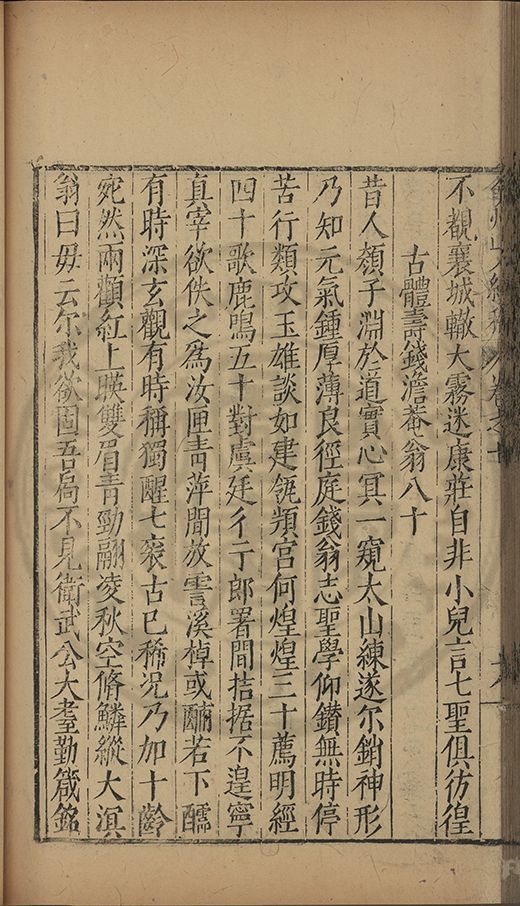 不觀襄城轍大霧迷康莊自非小兒言七聖俱彷徨
古體壽錢澹菴翁八十
昔人頟子淵於道實心冥一窺太山練遂尔銷神形
乃知元氣鍾厚薄良徑庭錢翁志聖學仰鑚無時停
苦行類攻玉雄談如建瓴頖宮何煌煌三十薦明經
四十歌鹿鳴五十對虞廷彳亍郎署間拮据不遑寧
真宰欲佚之爲汝匣青萍閒放霅溪棹或酾若下醹
有時深玄觀有時稱獨醒七袠古已稀况乃加十齡
宛然兩顴紅上暎雙眉青勁翮凌秋空脩鱗縱大溟
翁曰毋云尔我欲固吾扃不見衛武公大耋勤箴銘